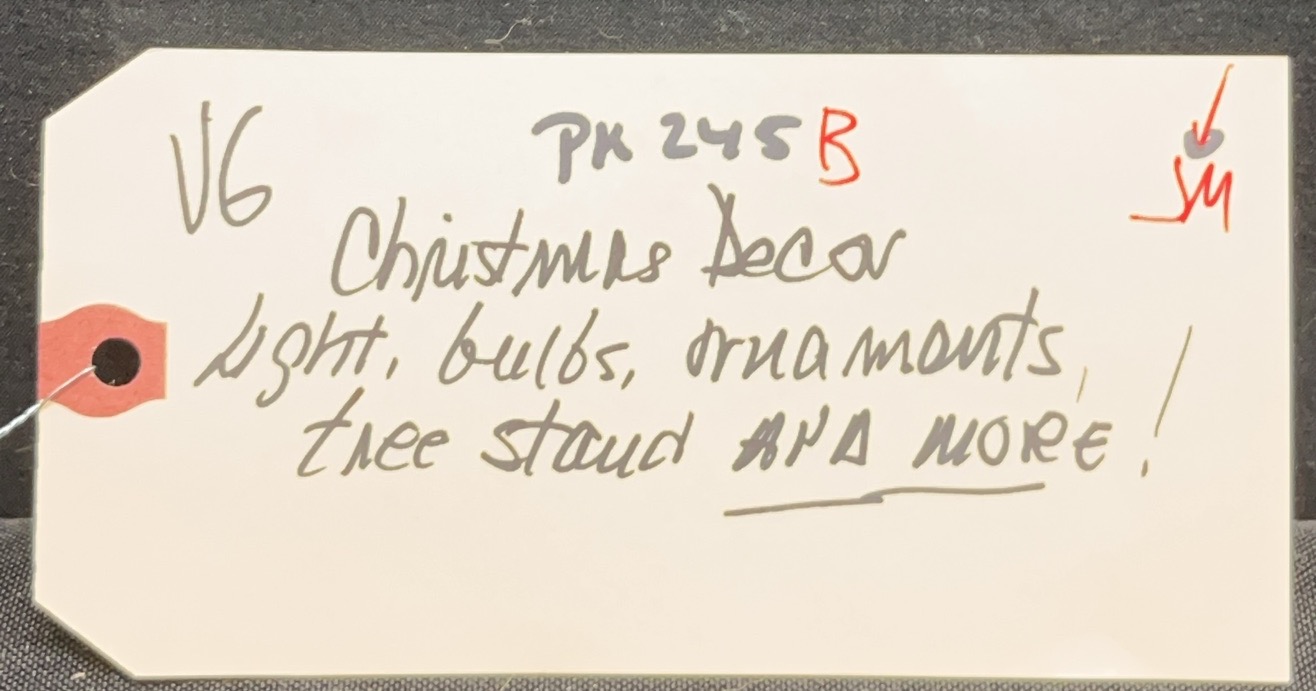 V6 PK 245 B
SM
Christmas Decor
Light, bulbs, ornaments,
tree stand AND MORE!